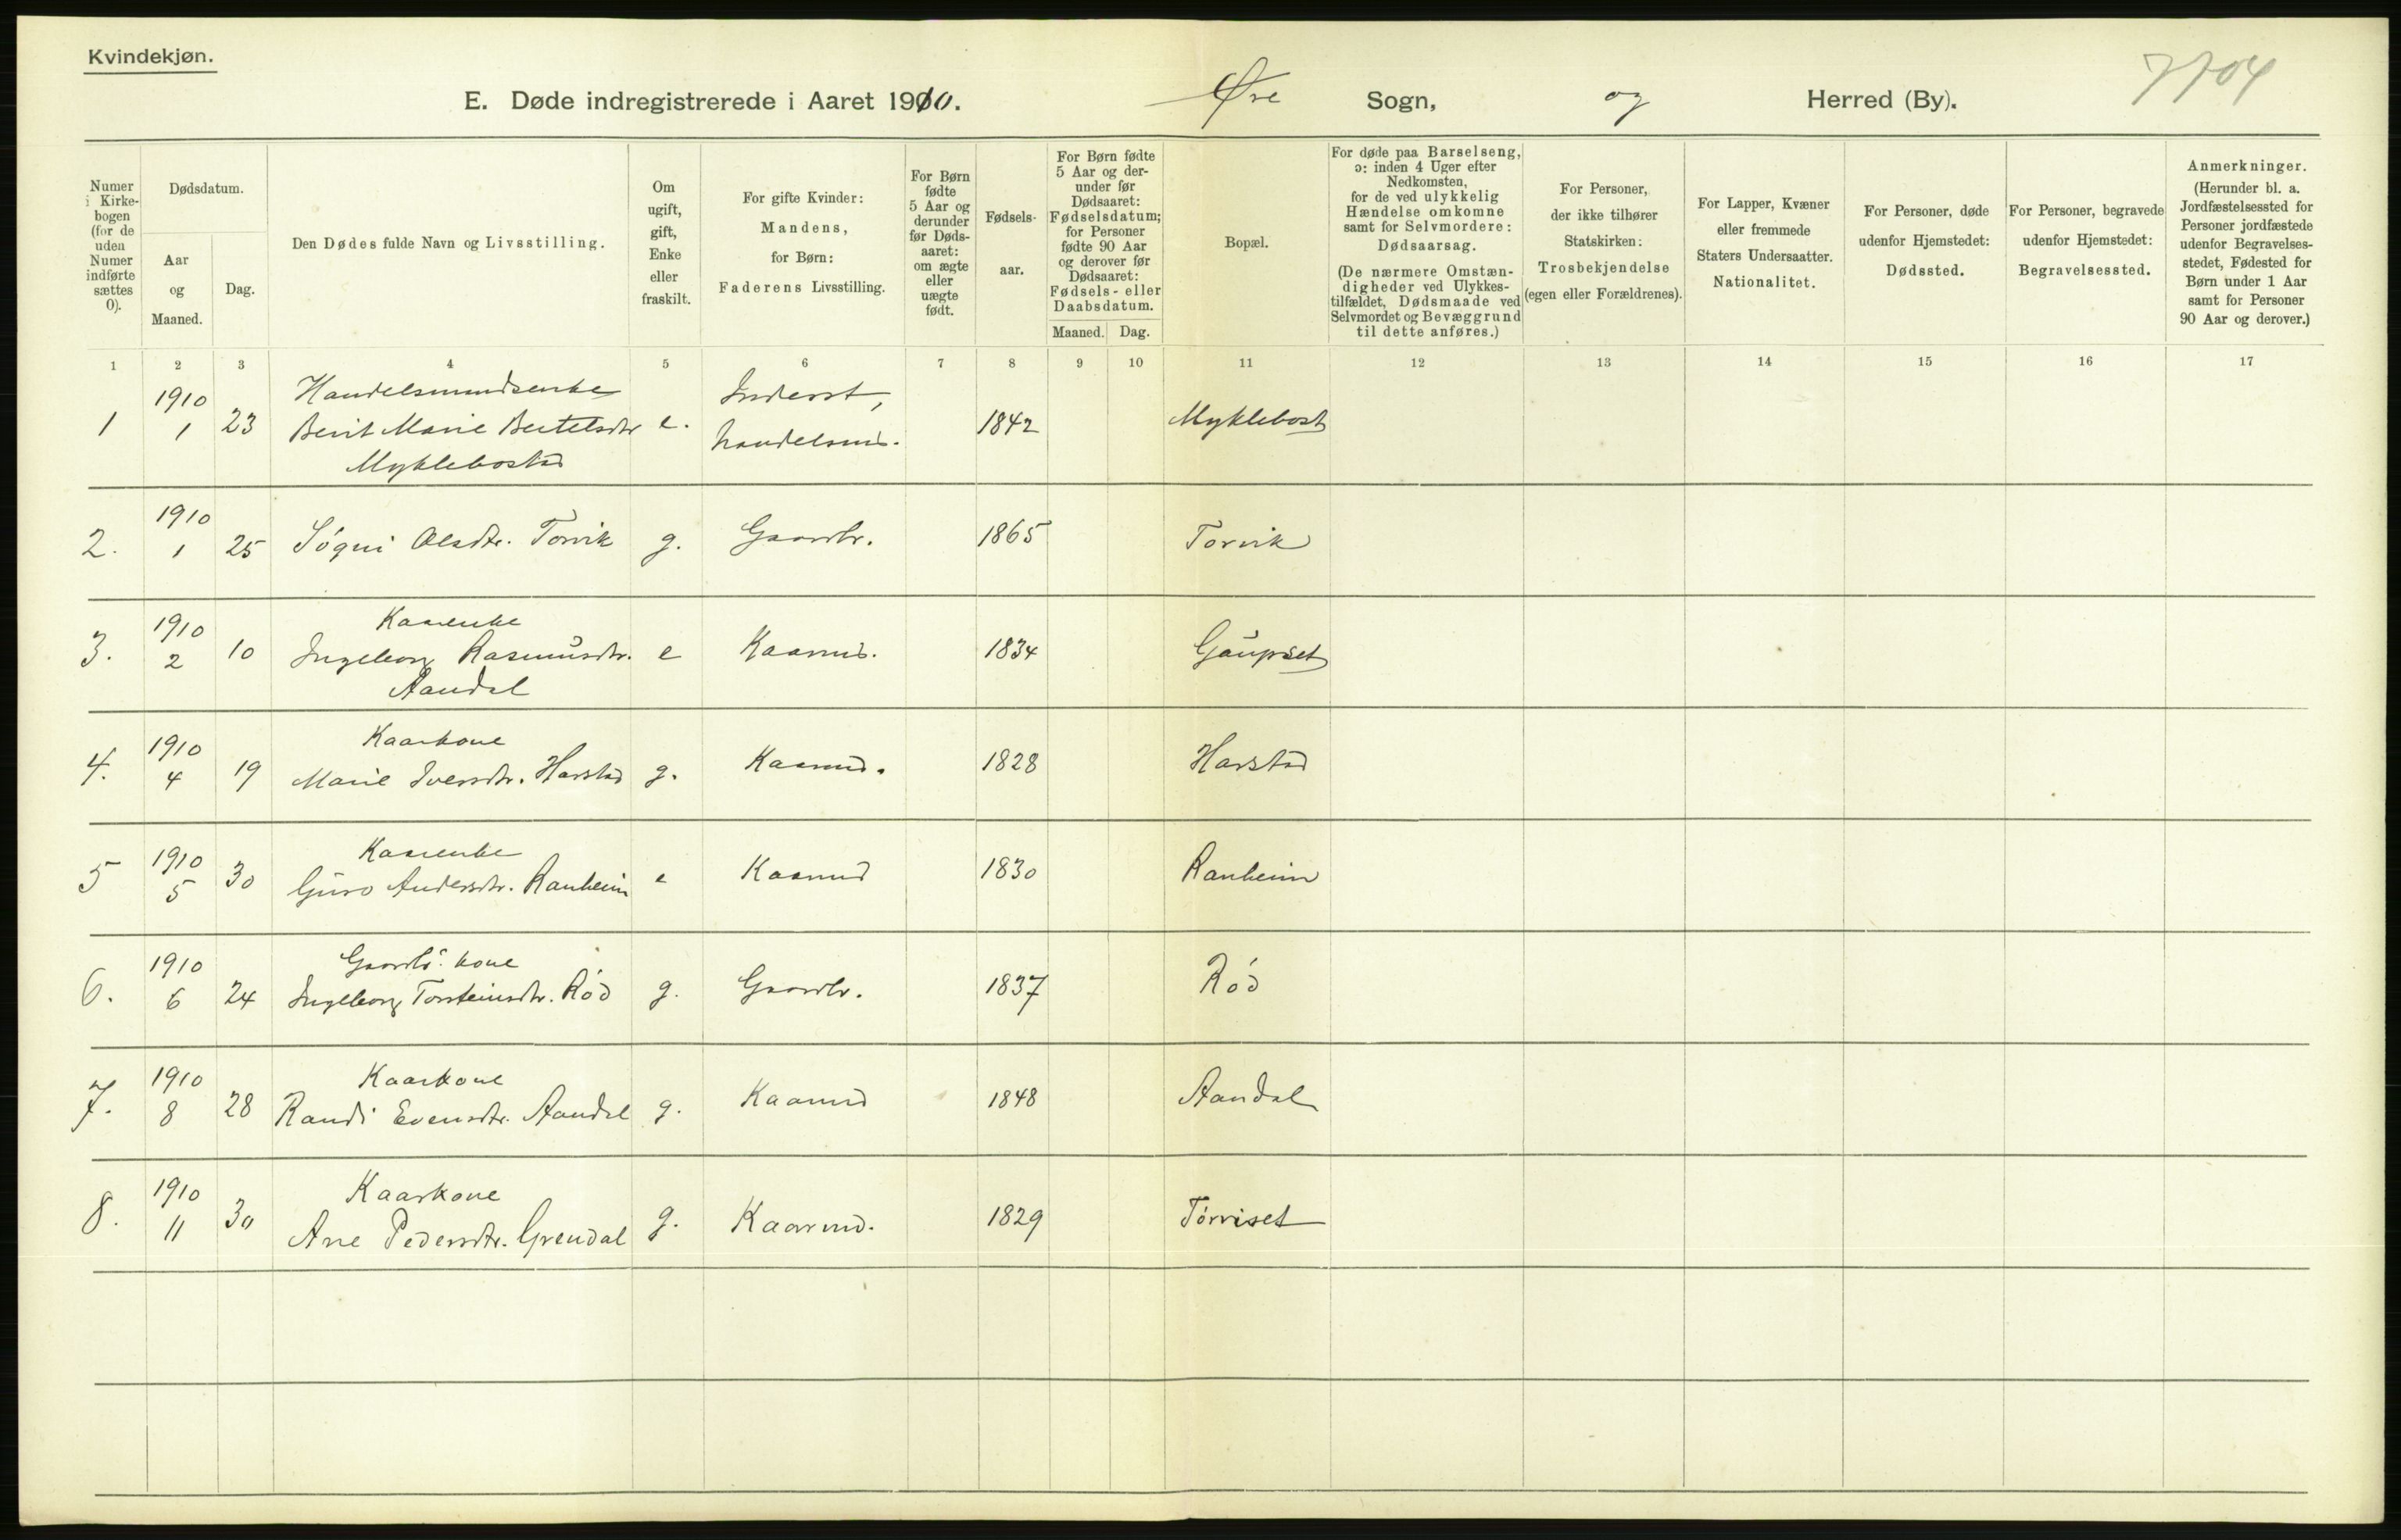 Kvindekjøn.
7704
E. Døde indregistrerede i Aaret 1910. Øre Sogn, og Herred (By).
Numer
i Kirke-
bogen
(for de
uden
Numer
indførte
sættes
0).
Dødsdatum.
Aar
og
Maaned.
Dag.
Den Dødes fulde Navn og Livsstilling.
Om
ugift,
gift,
Enke
eller
fraskilt.
For gifte Kvinder:
Mandens,
for Børn:
Faderens Livsstilling.
For Børn
fødte
5 Aar og
derunder
før Døds-
aaret:
om ægte
eller
uægte
født.
Fødsels-
aar.
For Børn fødte
5 Aar og der-
under før
Dødsaaret:
Fødselsdatum;
for Personer
fødte 90 Aar
og derover før
Dødsaaret:
Fødsels- eller
Daabsdatum.
Maaned. Dag.
Bopæl.
For døde paa Barselseng,
ɔ: inden 4 Uger efter
Nedkomsten,
for de ved ulykkelig
Hændelse omkomne
samt for Selvmordere:
Dødsaarsag.
(De nærmere Omstæn-
digheder ved Ulykkes-
tilfældet, Dødsmaade ved
Selvmordet og Bevæggrund
til dette anføres.)
For Personer,
der ikke tilhører
Statskirken:
Trosbekjendelse
(egen eller Forældrenes).
For Lapper, Kvæner
eller fremmede
Staters Undersaatter.
Nationalitet.
For Personer, døde
udenfor Hjemstedet:
Dødssted.
For Personer, begravede
udenfor Hjemstedet:
Begravelsessted.
Anmerkninger.
(Herunder bl. a.
Jordfæstelsessted for
Personer jordfæstede
udenfor Begravelses-
stedet, Fødested for
Børn under 1 Aar
samt for Personer
90 Aar og derover.)
1 2 3 4 5 6 7 8 9 10 11 12 13 14 15 16 17
1910 Handelsmandsenke Inderst,
1 1 23 Berit Marie Bertelsdtr e. handelsmd. 1842 Myklebost
Myklebostad
1910
2. 1 25 Sógni Olsdtr. Torvik g. Gaardbr. 1865 Torvik
1910 Kaarenke
3. 2 10 Ingeborg Rasmusdtr. e Kaarmd. 1834 Gaupset
Aandal
1910 Kaarkone
4. 4 19 Marie Iversdtr. Harstad g. Kaarmd. 1828 Harstad
1910 Kaarenke
5 5 30 Guro Andersdtr. Ranheim e Kaarmd 1830 Ranheim
1910 Gaardb. kone
6. 6 24 Ingeborg Torsteinsdtr. Ród g. Gaardbr. 1837 Ród
1910 Kaarkone
7. 8 28 Randi Evensdtr. Aandal g. Kaarmd 1848 Aandal
1910 Kaarkone
8. 11 30 Ane Pedersdtr. Grendal g. Kaarmd. 1829 Torviset